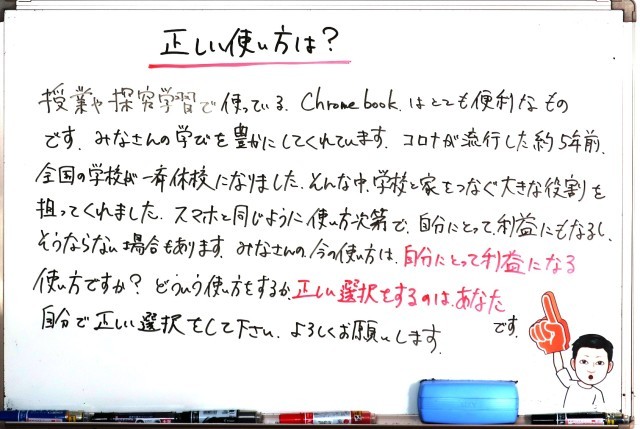 正しい使い方は?
授業や探究学習で使っている、Chromebook、はとても便利なもの
です。みなさんの学びを豊かにしてくれています。コロナが流行した約5年前、
全国の学校が一斉休校になりました。そんな中、学校と家をつなぐ大きな役割を
担ってくれました。スマホと同じように使い方次第で、自分にとって利益にもなるし、
そうならない場合もあります。みなさんの今の使い方は、自分にとって利益になる
使い方ですか?どういう使い方をするか、正しい選択をするのは、あなた
です。
自分で正しい選択をして下さい。よろしくお願いします。